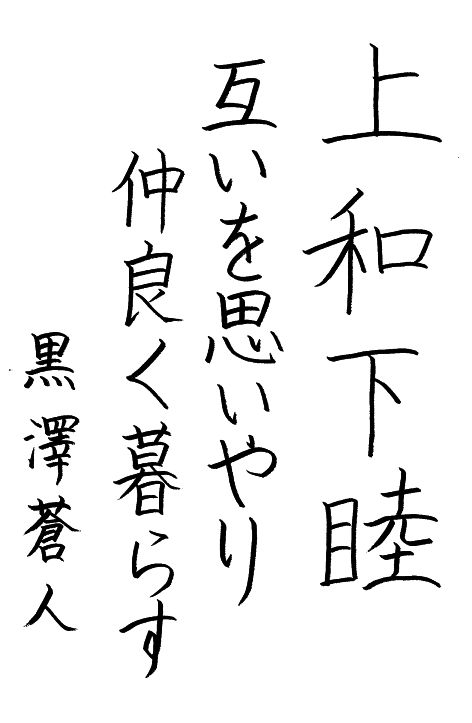 上和下睦
互いを思いやり
仲良く暮らす
黒澤蒼人